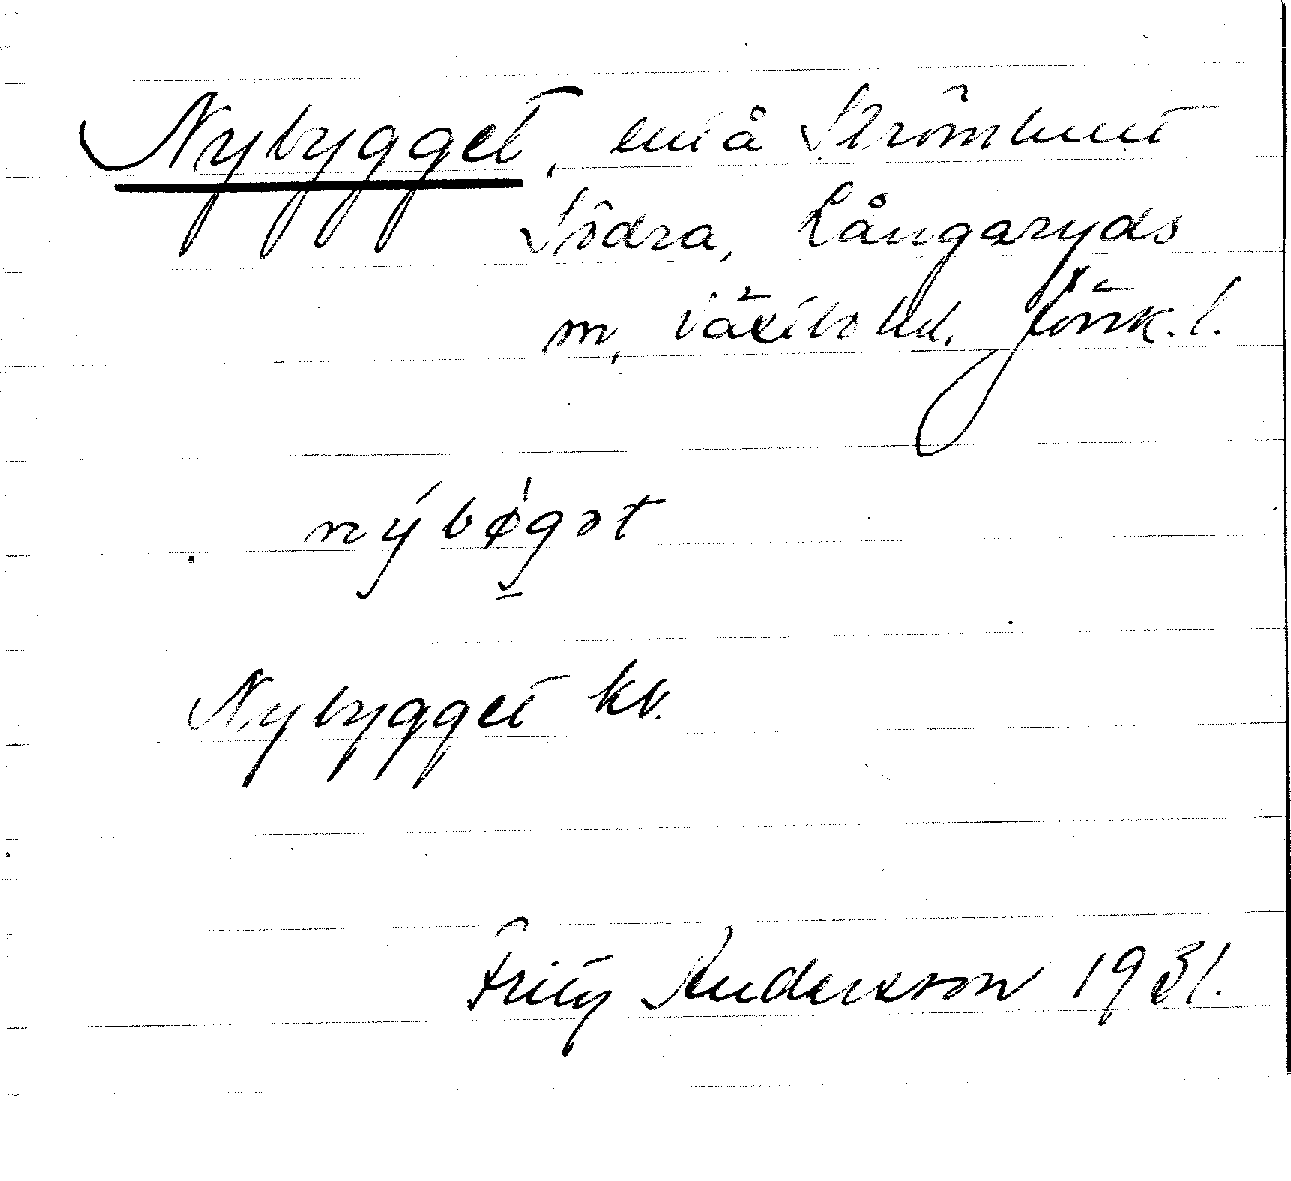 Nybygget, enl å Strömhult
Södra, Långaryds
m, Västbo hd. Jönk. l.
nýbø̀gət
Nybygget kv.
Fritz Andersson 1931.